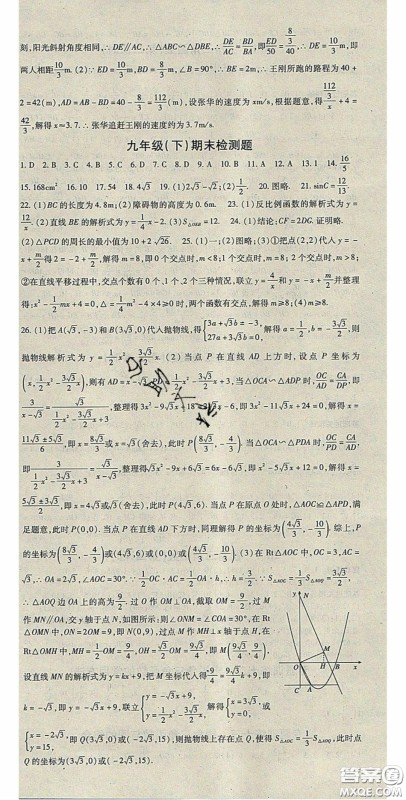 刻,阳光斜射角度相同,∴DE∥AC,∴△ABC∽△DBE,∴DE/AC=BD/BA,即DE/50=(8/3)/(40/3),∴DE=10/3,即
两人相距10/3m.(2)∵DE=10/3m,BD=8/3m,∠B=90°,∴BE=2m,∴王刚所跑的路程为40+
2=42(m),AD=AB-BD=40/3-8/3=32/3(m),设张华的速度为xm/s,根据题意,得(32/3)/x+4=
42/3,解得x≈3.7.∴张华追赶王刚的速度约为3.7m/s.
九年级(下)期末检测题
1.D 2.B 3.A 4.C 5.B 6.C 7.B 8.C 9.C 10.D 11.D 12.B 13.D 14.16/5
15.168cm² 16.10 17.54 18.4√3 19.(1)2√3-√2;(2)1/2. 20.图略. 21.sinC=12/13.
22.(1)BC的长度为4.8m;(2)障碍物的高度为0.6m. 23.(1)反比例函数的解析式为y=
12/x.(2)直线BE的解析式为y=1/4x-2.(3)S△OEB=12. 24.(1)结论:CF=2DG.证明略.
(2)△PCD的周长的最小值为10+2√26. 25.(1)一;(2)图略;(3)①把点(2,2)代入y=-
x+m/2得2=-2+m/2,解得:m=8,即0个交点时,m<8;1个交点时,m=8;2个交点时,m>8;
②在直线平移过程中,交点个数有0个、1个、2个三种情况,联立y=4/x和y=-x+m/2并整理
得:x²-1/2mx+4=0,△=1/4m²-4×4≥0时,两个函数有交点,解得:m≥8;(4)m≥8.
26.(1)把A(√3,-3)和B(3√3,0)代入抛物线,得{3a+√3b=-3,27a+3√3b=0,解得a=1/2,b=-3√3/2,则
抛物线解析式为y=1/2x²-3√3/2x.(2)当点P在直线AD上方时,设点P坐标为
整理得3x²-9√3x+18=2√3x-6,即3x²-11√3x+24=0,解得x=
(11√3±5√3)/6,即x=8√3/3或x=√3(舍去),此时P(8√3/3,-4/3).当△OCA∽△PDA时OC/PD=CA/DA,
整理得√3x²-9x+6√3=6x-6√3,即x²-5√3x+12=0,解得x=
(5√3±3√3)/2,即x=4√3或√3(舍去),此时P(4√3,6).当点P在原点O处时,△AOC≌△APD,满
足题意,此时P(0,0).当点P在直线AD下方时,同理解得P的坐标为(4√3/3,-10/3).综上,P
的坐标为(8√3/3,-4/3)或(4√3,6)或(0,0)或(4√3/3,-10/3).(3)在Rt△AOC中,OC=3,AC=
√3,∴OA=2√3,∠AOC=30°.∵1/2OC·AC=1/2OA·h,∴h=3/2.∵S△AOC=1/3S△AOQ=3√3/2,
∴△AOQ边OA上的高为9/2.过O作OM⊥OA,截取OM=9/2,过M
作MN∥OA,交y轴于点N,如图所示;则∠ONM=∠COA=30°,在Rt
△OMN中,OM=9/2,ON=2OM=9,即N(0,9),过点M作MH⊥x轴于点H,在
Rt△OMH中,MH=1/2OM=9/4,OH=√3/2OM=9√3/4,即M(9√3/4,9/4),
设直线MN的解析式为y=kx+9,把M坐标代入得9/4=9√3/4k+9,即
k=-√3,即y=-√3x+9,联立{y=-√3x+9,y=1/2x²-3√3/2x,解得{x=3√3,y=0或
{x=-2√3,y=15,即Q(3√3,0)或(-2√3,15),则抛物线上存在点Q,使得S△AOC=1/3S△AOQ,此时点
Q的坐标为(3√3,0)或(-2√3,15).
y
N
M
O
H
B
x
C
A
答案圈
MXQE.COM